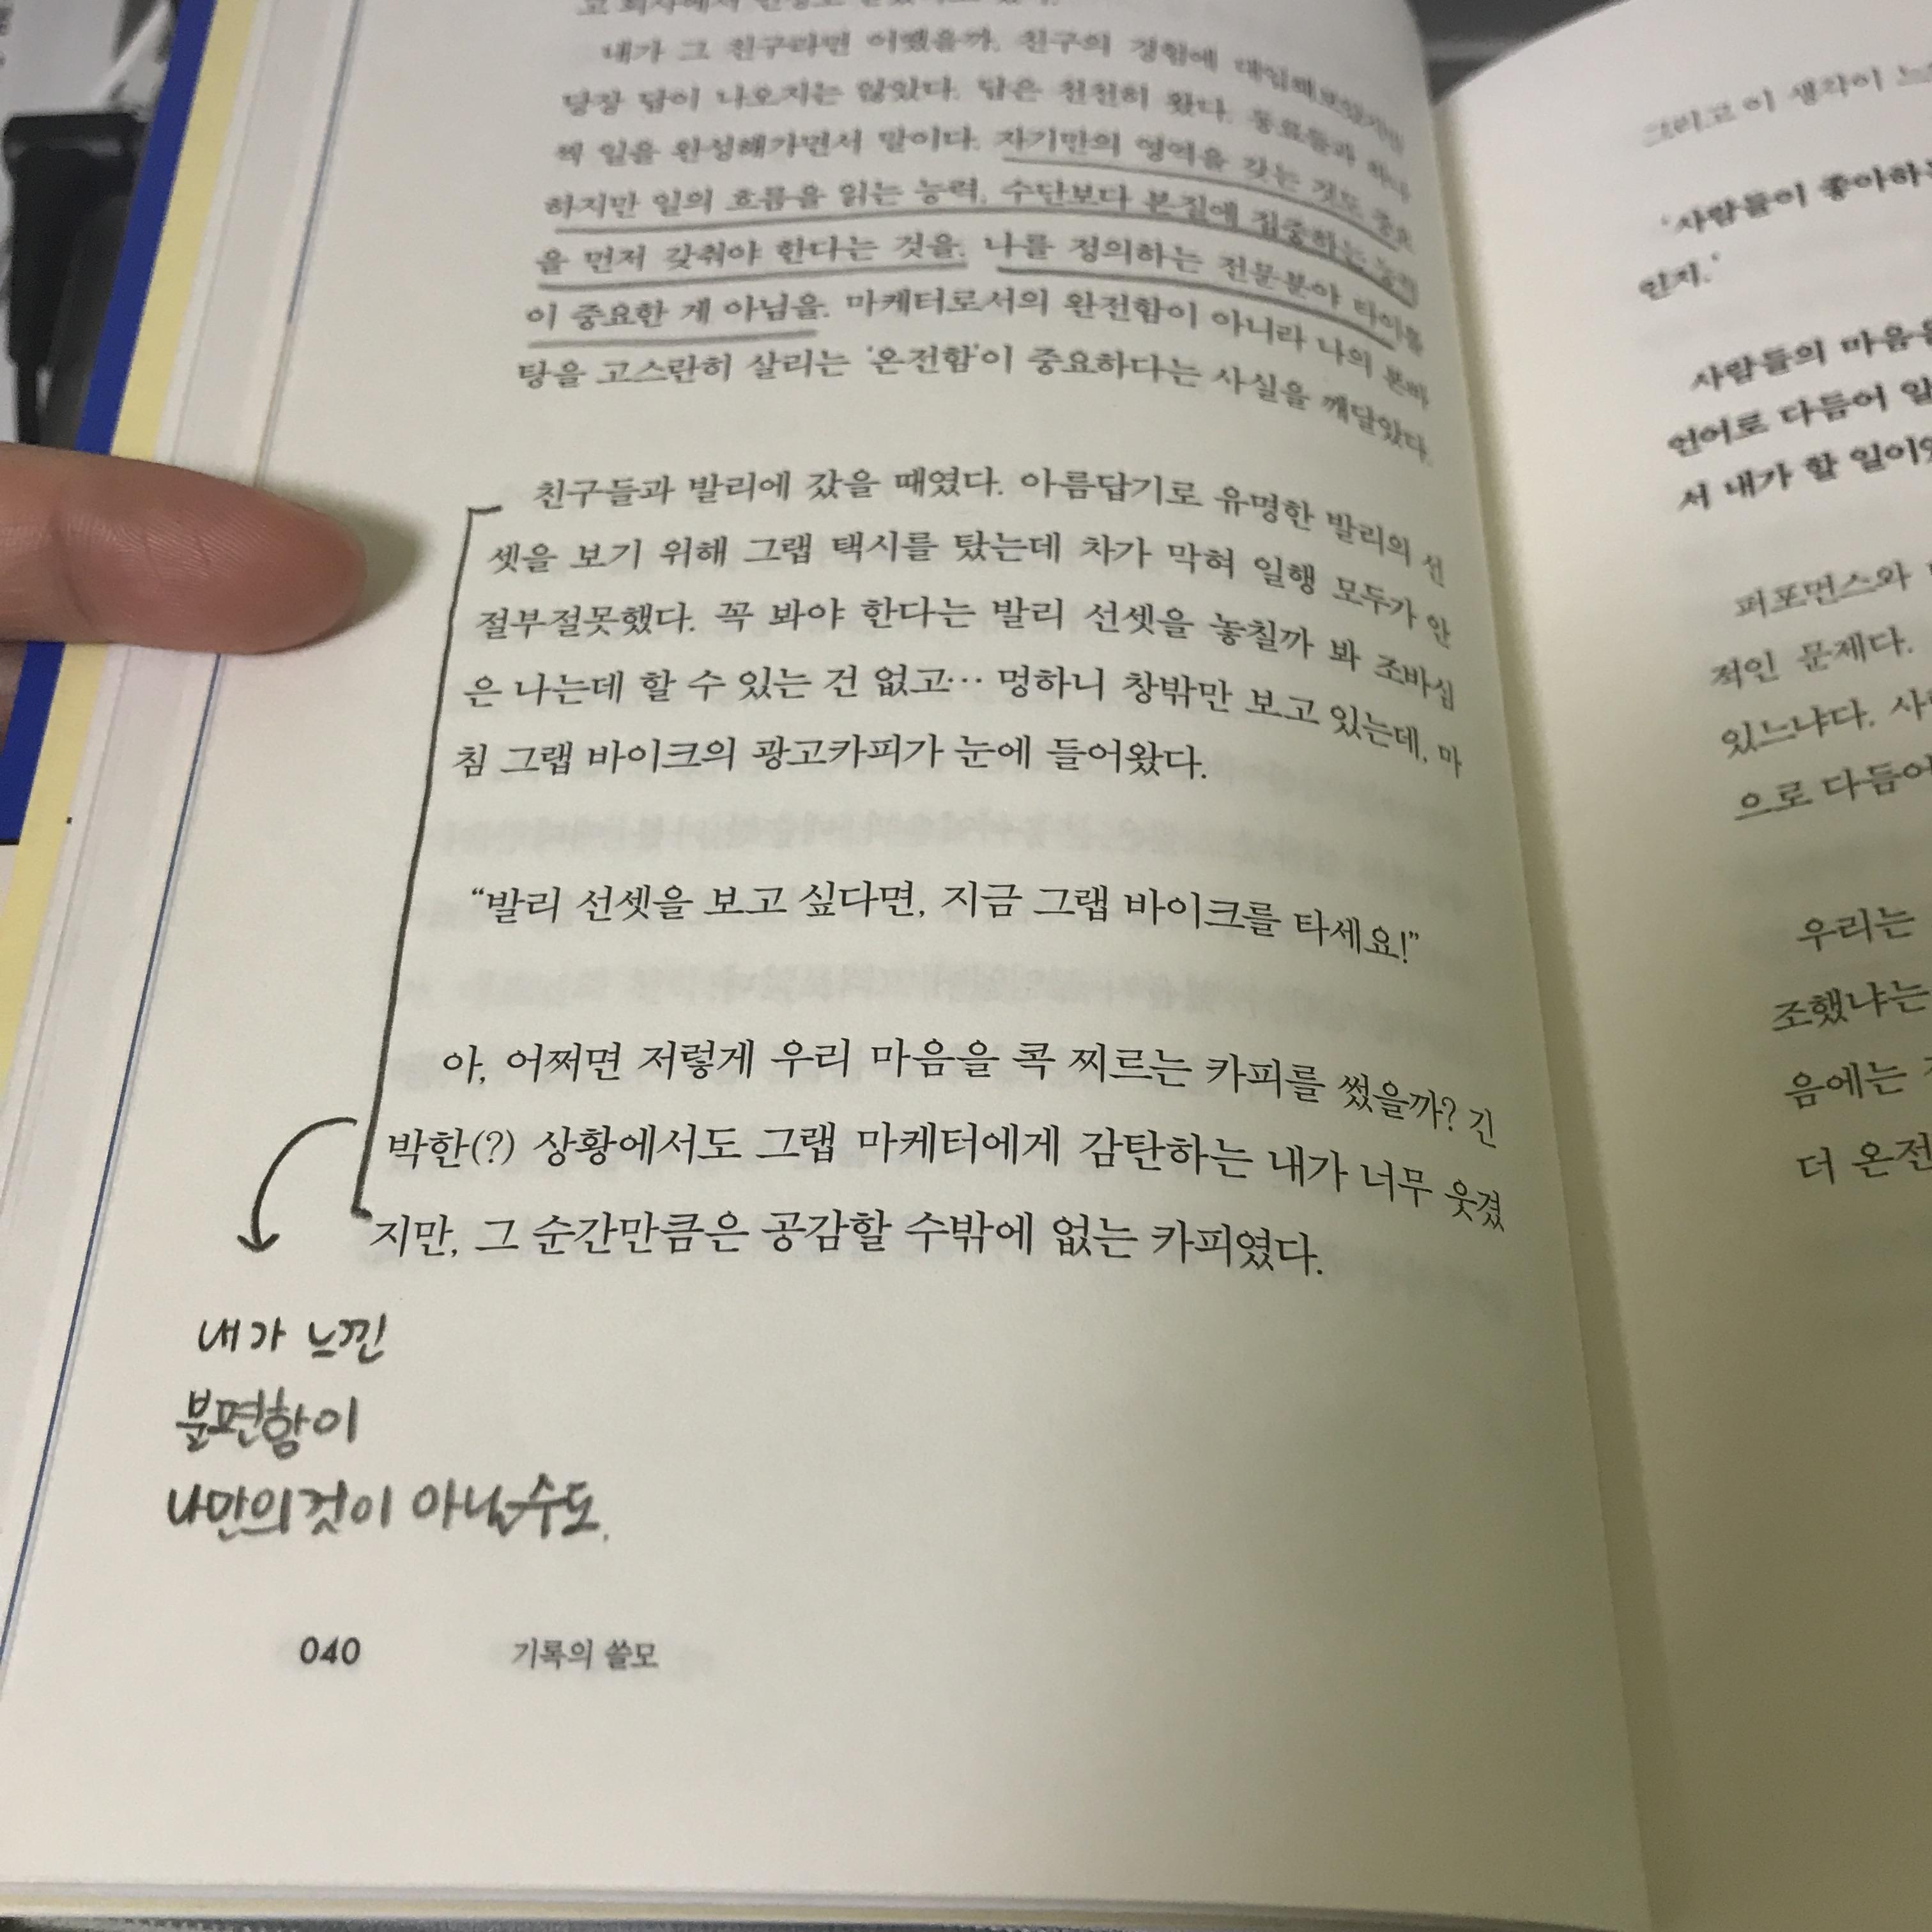 내가 그 친구라면 어땠을까. 친구의 경험에 대입해보았지만
당장 답이 나오지는 않았다. 답은 천천히 왔다. 동료들과 하나
씩 일을 완성해가면서 말이다. 자기만의 영역을 갖는 것도 중요
하지만 일의 흐름을 읽는 능력, 수단보다 본질에 집중하는 능력
을 먼저 갖춰야 한다는 것을. 나를 정의하는 전문분야 타이틀
이 중요한 게 아님을. 마케터로서의 완전함이 아니라 나의 본바
탕을 고스란히 살리는 '온전함'이 중요하다는 사실을 깨달았다.
친구들과 발리에 갔을 때였다. 아름답기로 유명한 발리의 선
셋을 보기 위해 그랩 택시를 탔는데 차가 막혀 일행 모두가 안
절부절못했다. 꼭 봐야 한다는 발리 선셋을 놓칠까 봐 조바심
은 나는데 할 수 있는 건 없고… 멍하니 창밖만 보고 있는데, 마
침 그랩 바이크의 광고카피가 눈에 들어왔다.
“발리 선셋을 보고 싶다면, 지금 그랩 바이크를 타세요!”
아, 어쩌면 저렇게 우리 마음을 콕 찌르는 카피를 썼을까? 긴
박한(?) 상황에서도 그랩 마케터에게 감탄하는 내가 너무 웃겼
지만, 그 순간만큼은 공감할 수밖에 없는 카피였다.
내가 느낀
불편함이
나만의 것이 아닐수도.
040 기록의 쓸모
그리고 이 생각이
'사람들이 좋아하는
인지.'
사람들의 마음을
언어로 다듬어
서 내가 할 일이
퍼포먼스와
적인 문제다.
있느냐다.
으로 다듬어
우리는
조했냐는
음에는
더 온전